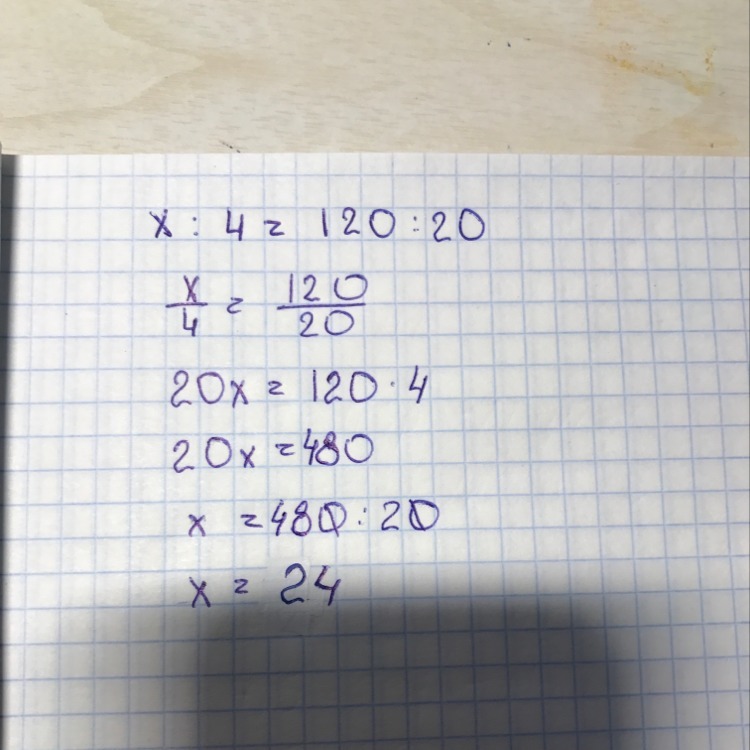 x : 4 = 120 : 20
x/4 = 120/20
20x = 120 · 4
20x = 480
x = 480 : 20
x = 24